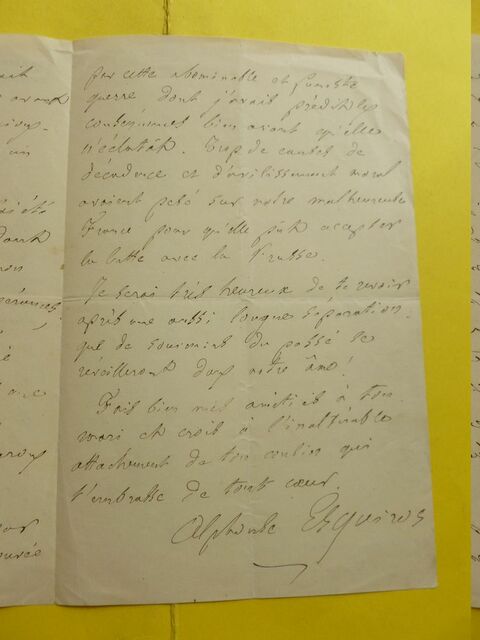 par cette abominable et funeste
guerre dont j'avais prédit les
conséquences bien avant qu'elle
n'éclatât. Trop de causes de
décadence et d'avilissement moral
avaient pesé sur notre malheureuse
France pour qu'elle pût accepter
la lutte avec la Prusse.
Je serai très heureux de te revoir
après une aussi longue séparation.
que de souvenirs du passé se
réveilleront dans notre âme!
Fais bien mes amitiés à ton
mari et crois à l'inaltérable
attachement de ton cousin qui
t'embrasse de tout cœur.
Alphonse Esquiros